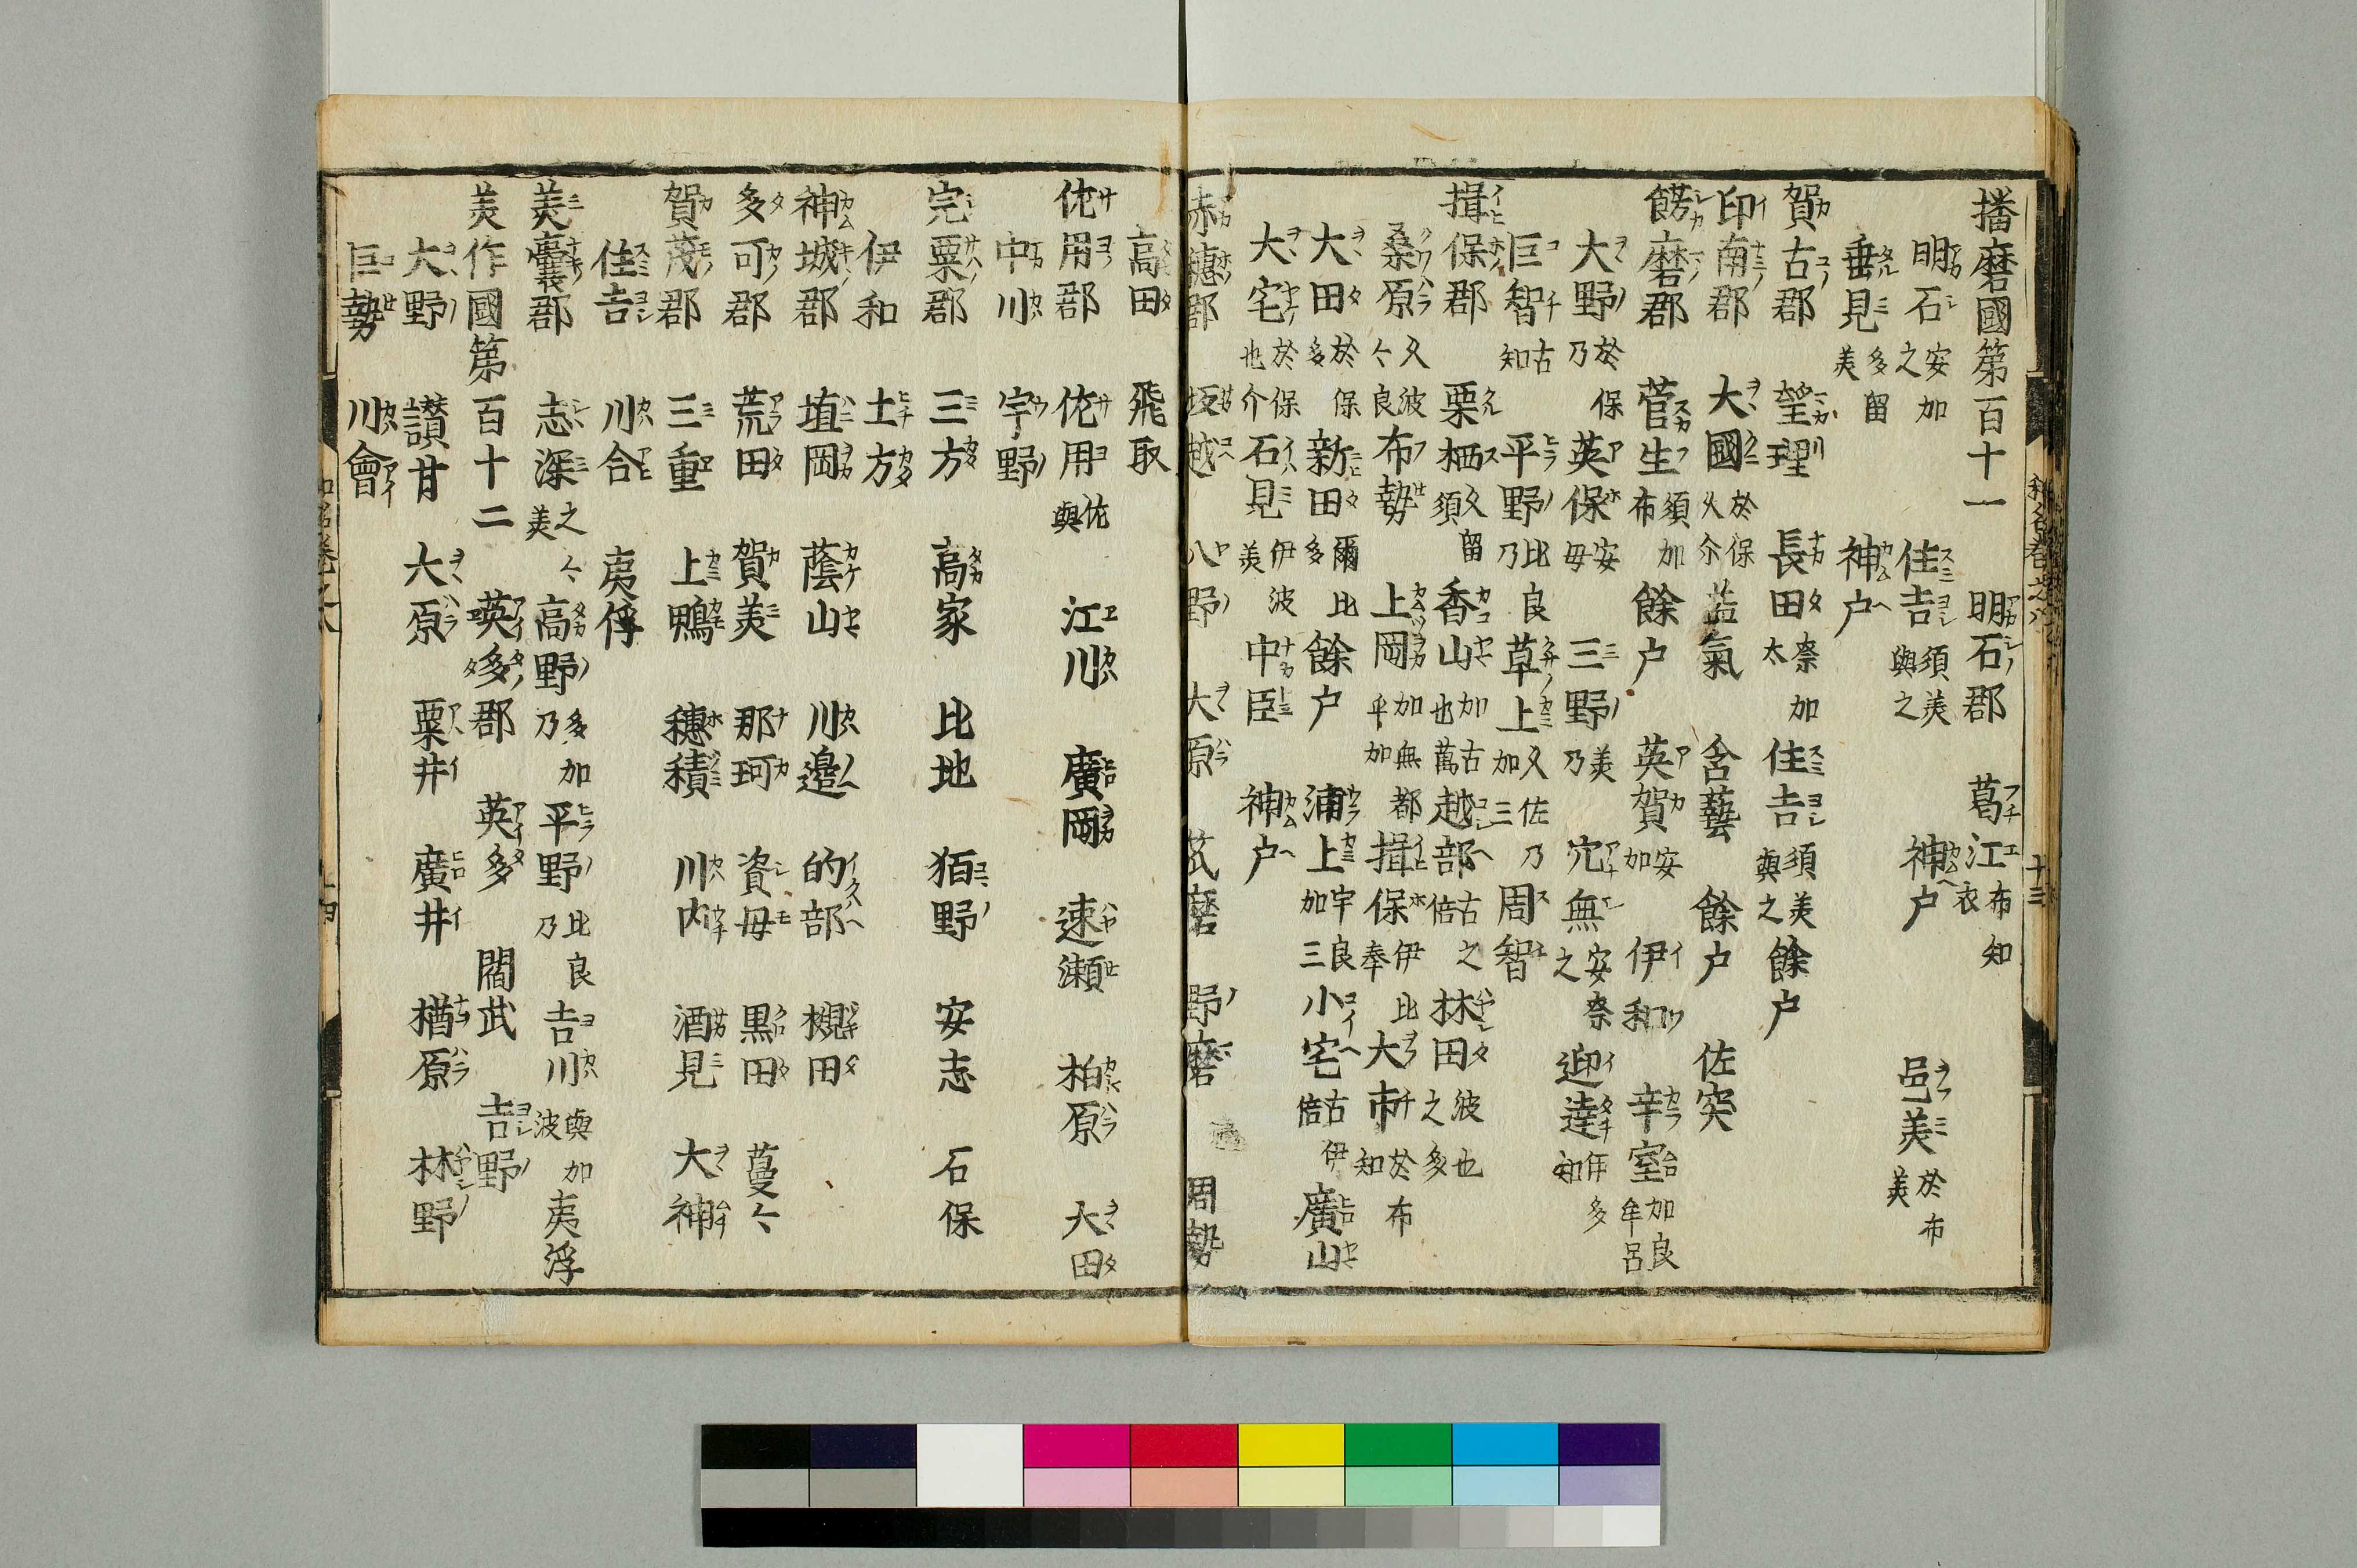 播磨國第百十一 明石郡 葛江布知衣
明石安加之 住吉須美與之 神戸 邑美於布美
垂見多留美 神戸
賀古郡 望理 長田奈加太 住吉須美與之 餘戸
印南郡 大國於保久介 益氣 含藝 餘戸 佐突
餝磨郡 菅生須加布 餘戸 英賀安加 伊和 辛室加良牟呂
大野於保乃 英保安母 三野美乃 穴無安奈之 迎達伊多知
巨智古知 平野比良乃 草上久佐乃加三 周智
揖保郡 栗栖久留須 香山加古也萬 越部古之倍 林田波也之多
桑原久波々良 布勢 上岡加無都乎加 揖保伊比奉 大市於布知
大田於保多 新田爾比多 餘戸 浦上宇良加三 小宅古伊倍 廣山
大宅於保也介 石見伊波美 中臣 神戸
赤穗郡 坂越 八野 大原 茋磨 野磨 周勢
高田 飛取
佐用郡 佐用佐與 江川 廣岡 速瀬 柏原 大田
中川 宇野
完粟郡 三方 高家 比地 狛野 安志 石保
伊和 土方
神城郡 埴岡 蔭山 川邉 的部 槻田
多可郡 荒田 賀美 那珂 資母 黒田 蔓々
賀茂郡 三重 上鴨 穗積 川内 酒見 大神
住吉 川合 夷俘
美囊郡 志深之々美 高野多加乃 平野比良乃 吉川與加波 夷浮
美作國第百十二 英多郡 英多 閻武 吉野
大野 讃甘 大原 粟井 廣井 楢原 林野
巨勢 川會